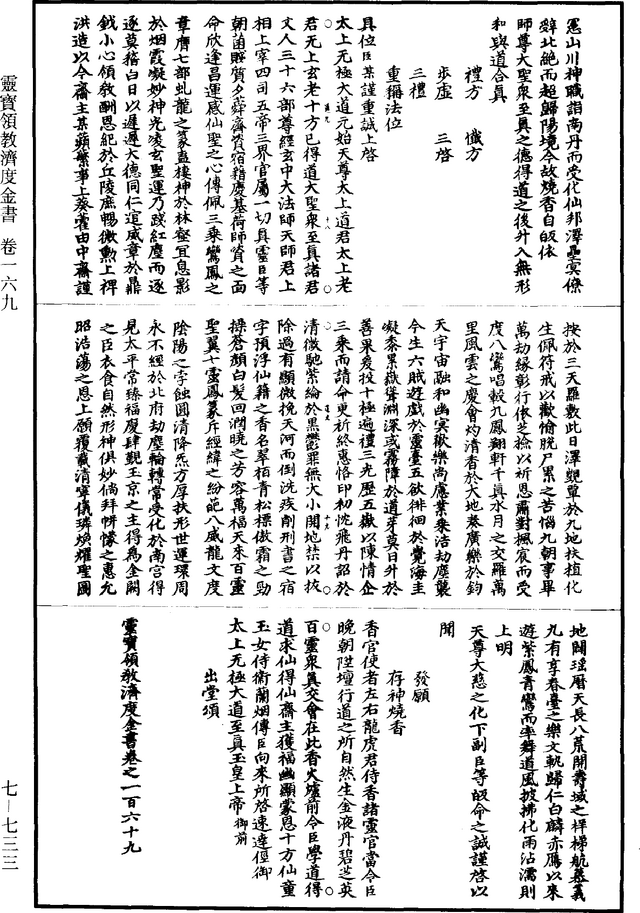 靈寶領教濟度金書 卷一六九
七—七三三
冤山川神職詣南丹而受化仙邦澤壘冥僚
辭北絶而超歸陽境今故燒香自皈依
師尊大聖衆至真之德得道之後升入無形
和與道合真
禮方 懺方
步虛 三啓
三禮
重稱法位
具位臣某謹重誠上啓
太上无極大道元始天尊太上道君太上老
君无上玄老十方已得道大聖衆至真諸君
丈人三十六部尊經玄中大法師天師君上
相上宰四司五帝三界官屬一切真靈臣等
朝菌賤質夕蕣
命欣逢昌運感仙聖之心傳佩三乘鸞鳳之
章膺七部虬龍之篆蓋棲神於林壑宜息影
於烟霞凝妙神光凌玄聖運乃踐紅塵而逐
逐莫稽白日以遲遲大德同仁
鉞小心領教酬恩紀於丘陵庶暢微勲上裨
洪造以今齋主某蘋蘩事上葵藿由中齋謹
按於三天羅敷此日澤覬單於九地扶植化
生佩符戒以歡愉脱尸累之苦惱九朝事畢
萬劫緣彰行依芝捻以祈恩肅對楓宸而受
度八鸞唱轂九鳳翔軒千真水月之交羅萬
里風雲之慶會灼清香於大地奏廣樂於鈞
天宇宙融和幽冥歡樂尚慮業乘浩劫塵襲
今生六賊遊戲於靈臺五欲徘徊於覺海圭
礙黍累嶽聳淵深或霧障於道芽莫日升於
善果爰投十極遍禮三光歷五嶽以陳情企
三乘而請命更祈終惠恪印初忱飛丹詔於
清微馳紫綸於黑鬱罪無大小開地禁以拔
除過有顯微挽天河而倒洗疾削刑書之宿
字預浮仙籍之香名翠栢青松標傲霜之勁
操蒼顔白髮回潤曉之芳容萬福天來百靈
聖翼十靈鳳篆斥經緯之紛葩八威龍文度
陰陽之字蝕圓清降炁方厚扶形世運環周
永不經於北府劫塵輪轉常受化於南宮得
見太平常臻福慶肆覲玉京之主得爲金闕
之臣衣食自然形神俱妙倘拜帡幪之惠允
昭浩蕩之恩上願覆載清寧儀璘煥耀聖圖
地闊瑶曆天長八荒開壽域之梯航慕義
九有享春臺之樂文軌歸仁白麟赤鴈以來
遊紫鳳青鸞而率舞道風披拂化雨沾濡則
上明
天尊大慈之化下副臣等皈命之誠謹啓以
聞
發願
存神燒香
香官使者左右龍虎君侍香諸靈官當令臣
晩朝陞壇行道之所自然生金液丹碧芝英
百靈衆真交會在此香火爐前令臣學道得
道求仙得仙齋主獲福幽顯蒙恩十方仙童
玉女侍衛蘭烟傳臣向來所啓速達徑御
太上无極大道至真玉皇上帝御前
出堂頌
靈寶領教濟度金書卷之一百六十九